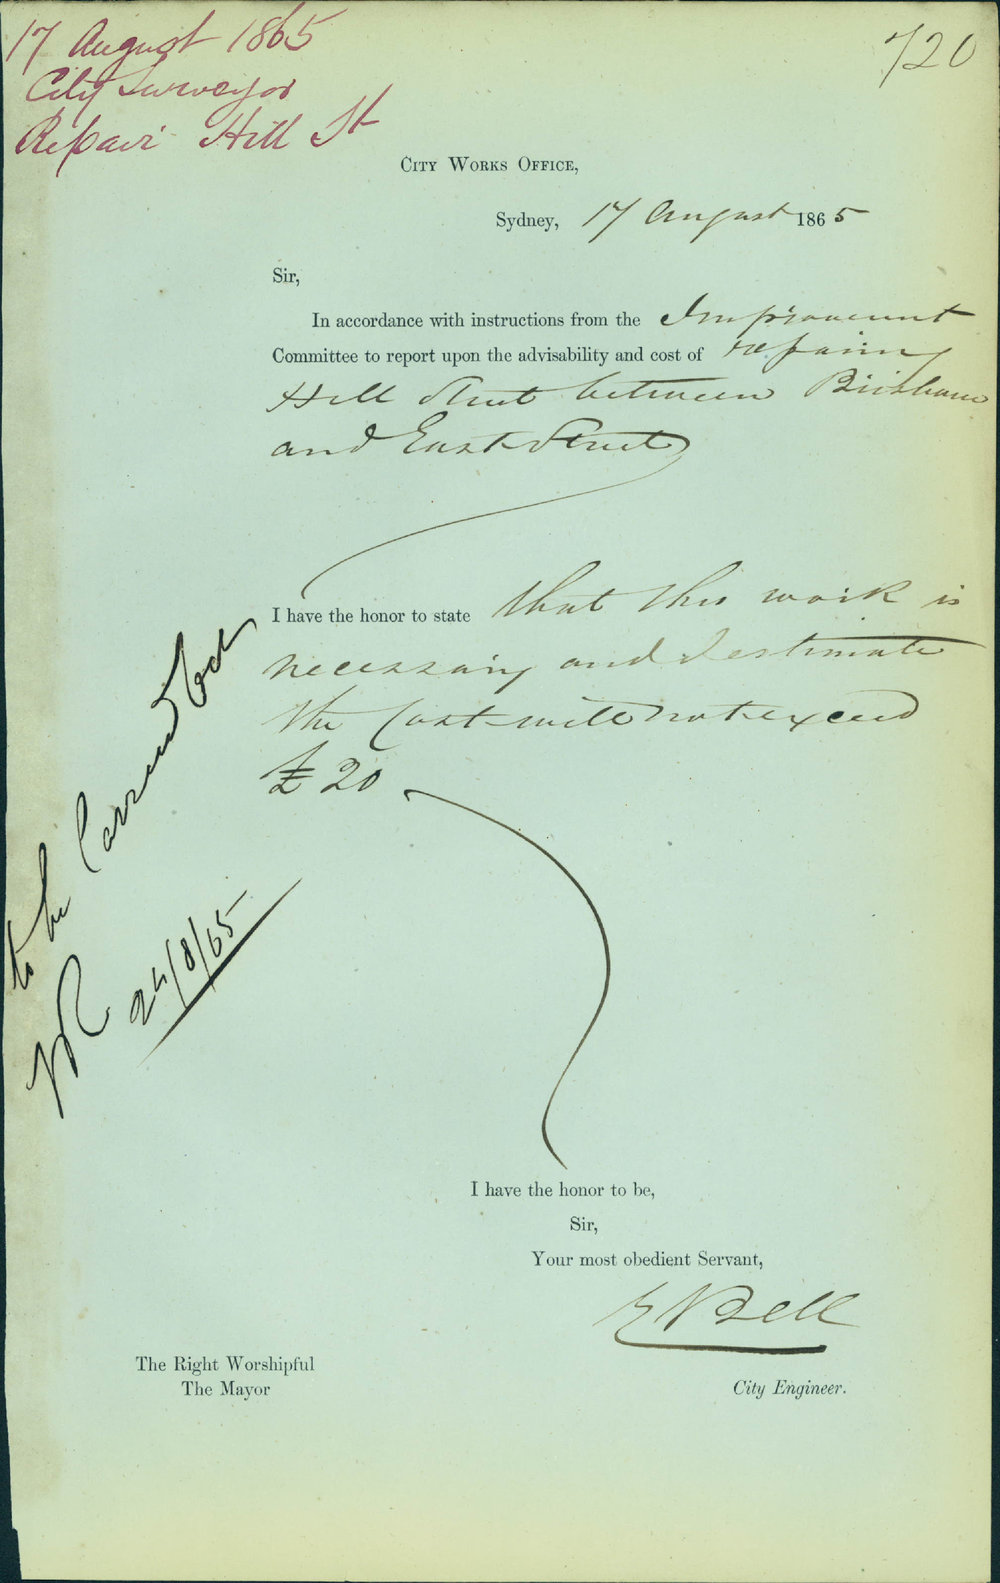 17 August 1865
City Surveyor
Repair Hill St
720
City Works Office,
Sydney, 17 August 1865
Sir,
In accordance with instructions from the Improvement
Committee to report upon the advisability and cost of repairing
Hill Street between Brisbane
and East Street
I have the honor to state that this work is
necessary and I estimate
the Cost will not exceed
£20
to be Carried Out
24/8/65
I have the honor to be,
Sir,
Your most obedient Servant,
E Bell
The Right Worshipful
The Mayor
City Engineer.